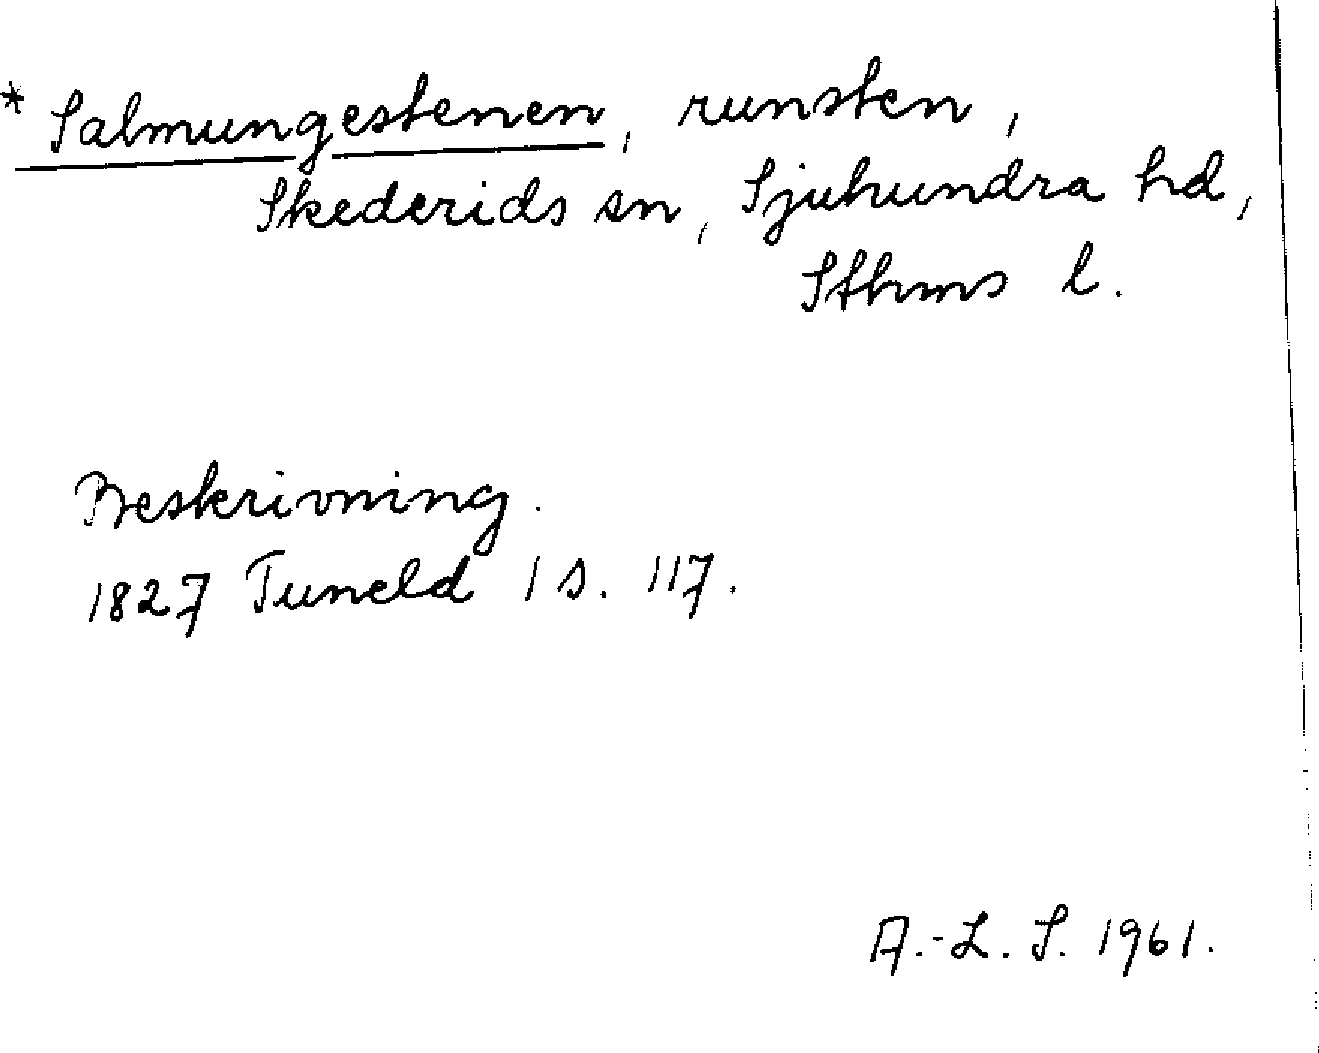 * Salmungestenen, runsten,
Skederids sn, Sjuhundra hd,
Sthms l.
Beskrivning.
1827 Tuneld 1 s. 117.
A.-L. S. 1961.